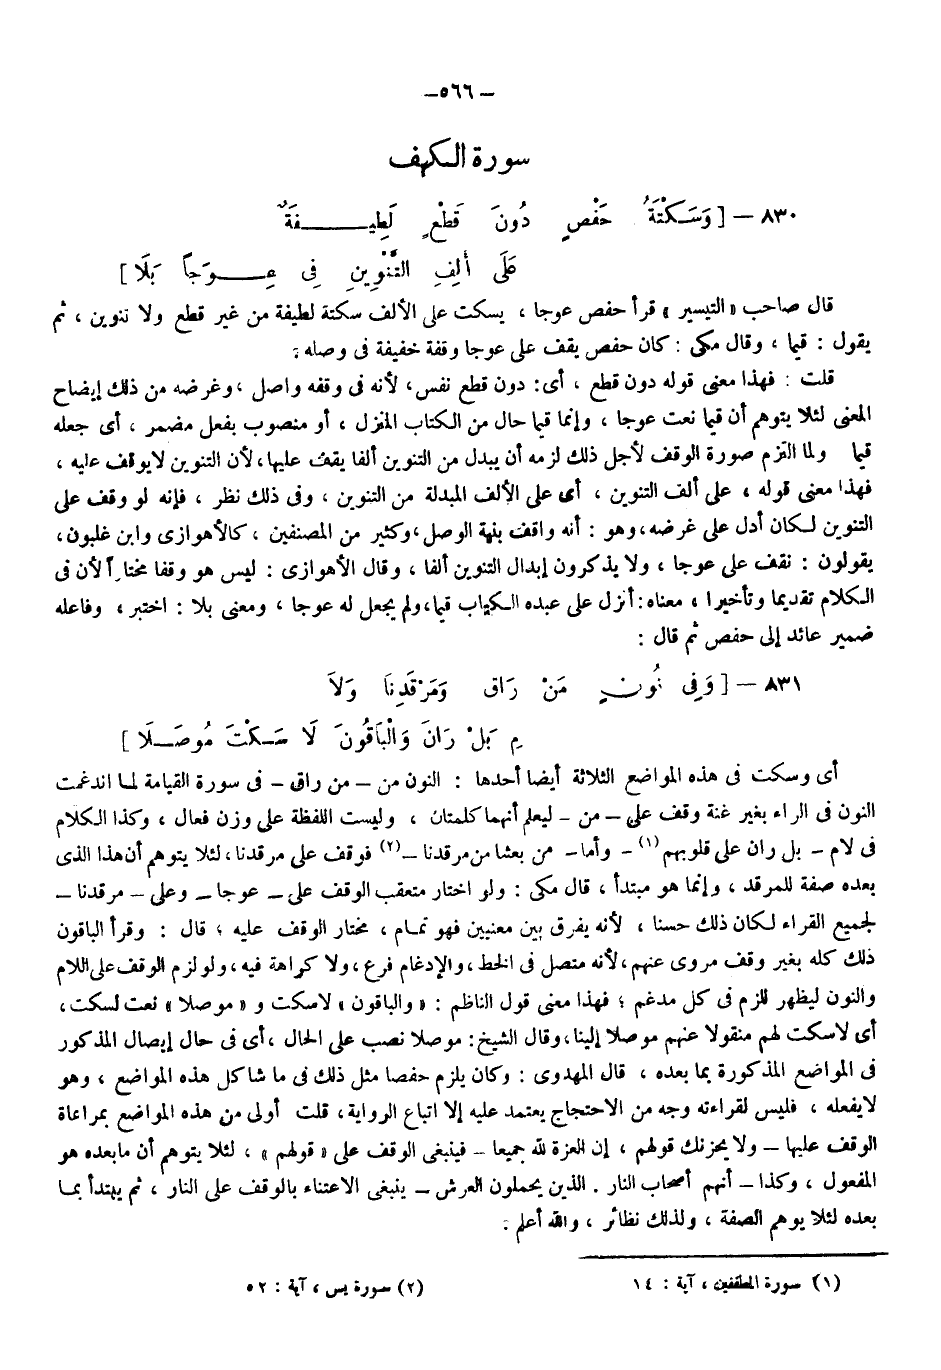 ـ ٥٦٦ ـ
سورة الكهف
٨٣٠ — [ وَسَكْتَةُ حَفْصٍ دُونَ قَطْعٍ لَطِيفَةٌ
عَلَى أَلِفِ التَّنْوِينِ فِى عِوَجاً بَلَا ]
قال صاحب « التيسير » قرأ حفص عوجا ، يسكت على الألف سكتة لطيفة من غير قطع ولا تنوين ، ثم
يقول : قيما ، وقال مكى : كان حفص يقف على عوجا وقفة خفيفة فى وصله .
قلت : فهذا معنى قوله دون قطع ، أى : دون قطع نفس، لأنه فى وقفه واصل ، وغرضه من ذلك إيضاح
المعنى لئلا يتوهم أن قيما نعت عوجا ، وإنما قيما حال من الكتاب المنزل ، أو منصوب بفعل مضمر ، أى جعله
قيما ولما التزم صورة الوقف لأجل ذلك لزمه أن يبدل من التنوين ألفا يقف عليها، لأن التنوين لايوقف عليه ،
فهذا معنى قوله ، على ألف التنوين ، أى على الألف المبدلة من التنوين ، وفى ذلك نظر ، فإنه لو وقف على
التنوين لكان أدل على غرضه، وهو : أنه واقف بنية الوصل ، وكثير من المصنفين ، كالأهوازى وابن غلبون ،
يقولون : نقف على عوجا ، ولا يذكرون إبدال التنوين ألفا ، وقال الأهوازى : ليس هو وقفا مختاراً لأن فى
الكلام تقديما وتأخيرا ، معناه : أنزل على عبده الكتاب قيما، ولم يجعل له عوجا ، ومعنى بلا : اختبر ، وفاعله
ضمير عائد إلى حفص ثم قال :
٨٣١ — [ وَفِى نُونِ مَنْ رَاقٍ وَمَرْقَدِنَا وَلَا
مِ بَلْ رَانَ وَالْبَاقُونَ لَا سَكْتَ مُوصَلَا ]
أى وسكت فى هذه المواضع الثلاثة أيضا أحدها : النون من — من راق — فى سورة القيامة لما اندغمت
النون فى الراء بغير غنة وقف على — من — ليعلم أنهما كلمتان ، وليست اللفظة على وزن فعال ، وكذا الكلام
فى لام — بل ران على قلوبهم (١) — وأما — من بعثنا من مرقدنا — (٢) فوقف على مرقدنا ، لئلا يتوهم أن هذا الذى
بعده صفة للمرقد ، وإنما هو مبتدأ ، قال مكى : ولو اختار متعقب الوقف على — عوجا — وعلى — مرقدنا —
لجميع القراء لكان ذلك حسنا ، لأنه يفرق بين معنيين فهو تمام ، مختار الوقف عليه ؛ قال : وقرأ الباقون
ذلك كله بغير وقف مروى عنهم ، لأنه متصل فى الخط ، والإدغام فرع ، ولا كراهة فيه ، ولو لزم الوقف على اللام
والنون ليظهر للزم فى كل مدغم ؛ فهذا معنى قول الناظم : « والباقون » لاسكت و « موصلا » نعت لسكت ،
أى لاسكت لهم منقولا عنهم موصلا إلينا ، وقال الشيخ : موصلا نصب على الحال ، أى فى حال إيصال المذكور
فى المواضع المذكورة بما بعده ، قال المهدوى : وكان يلزم حفصا مثل ذلك فى ما شاكل هذه المواضع ، وهو
لايفعله ، فليس لقراءته وجه من الاحتجاج يعتمد عليه إلا اتباع الرواية ، قلت أولى من هذه المواضع بمراعاة
الوقف عليها — ولا يحزنك قولهم ، إن العزة لله جميعا — فينبغى الوقف على « قولهم » ، لئلا يتوهم أن مابعده هو
المفعول ، وكذا — أنهم أصحاب النار . الذين يحملون العرش — ينبغى الاعتناء بالوقف على النار ، ثم يبتدأ بما
بعده لئلا يوهم الصفة ، ولذلك نظائر ، والله أعلم .
(١) سورة المطففين ، آية : ١٤
(٢) سورة يس ، آية : ٥٢